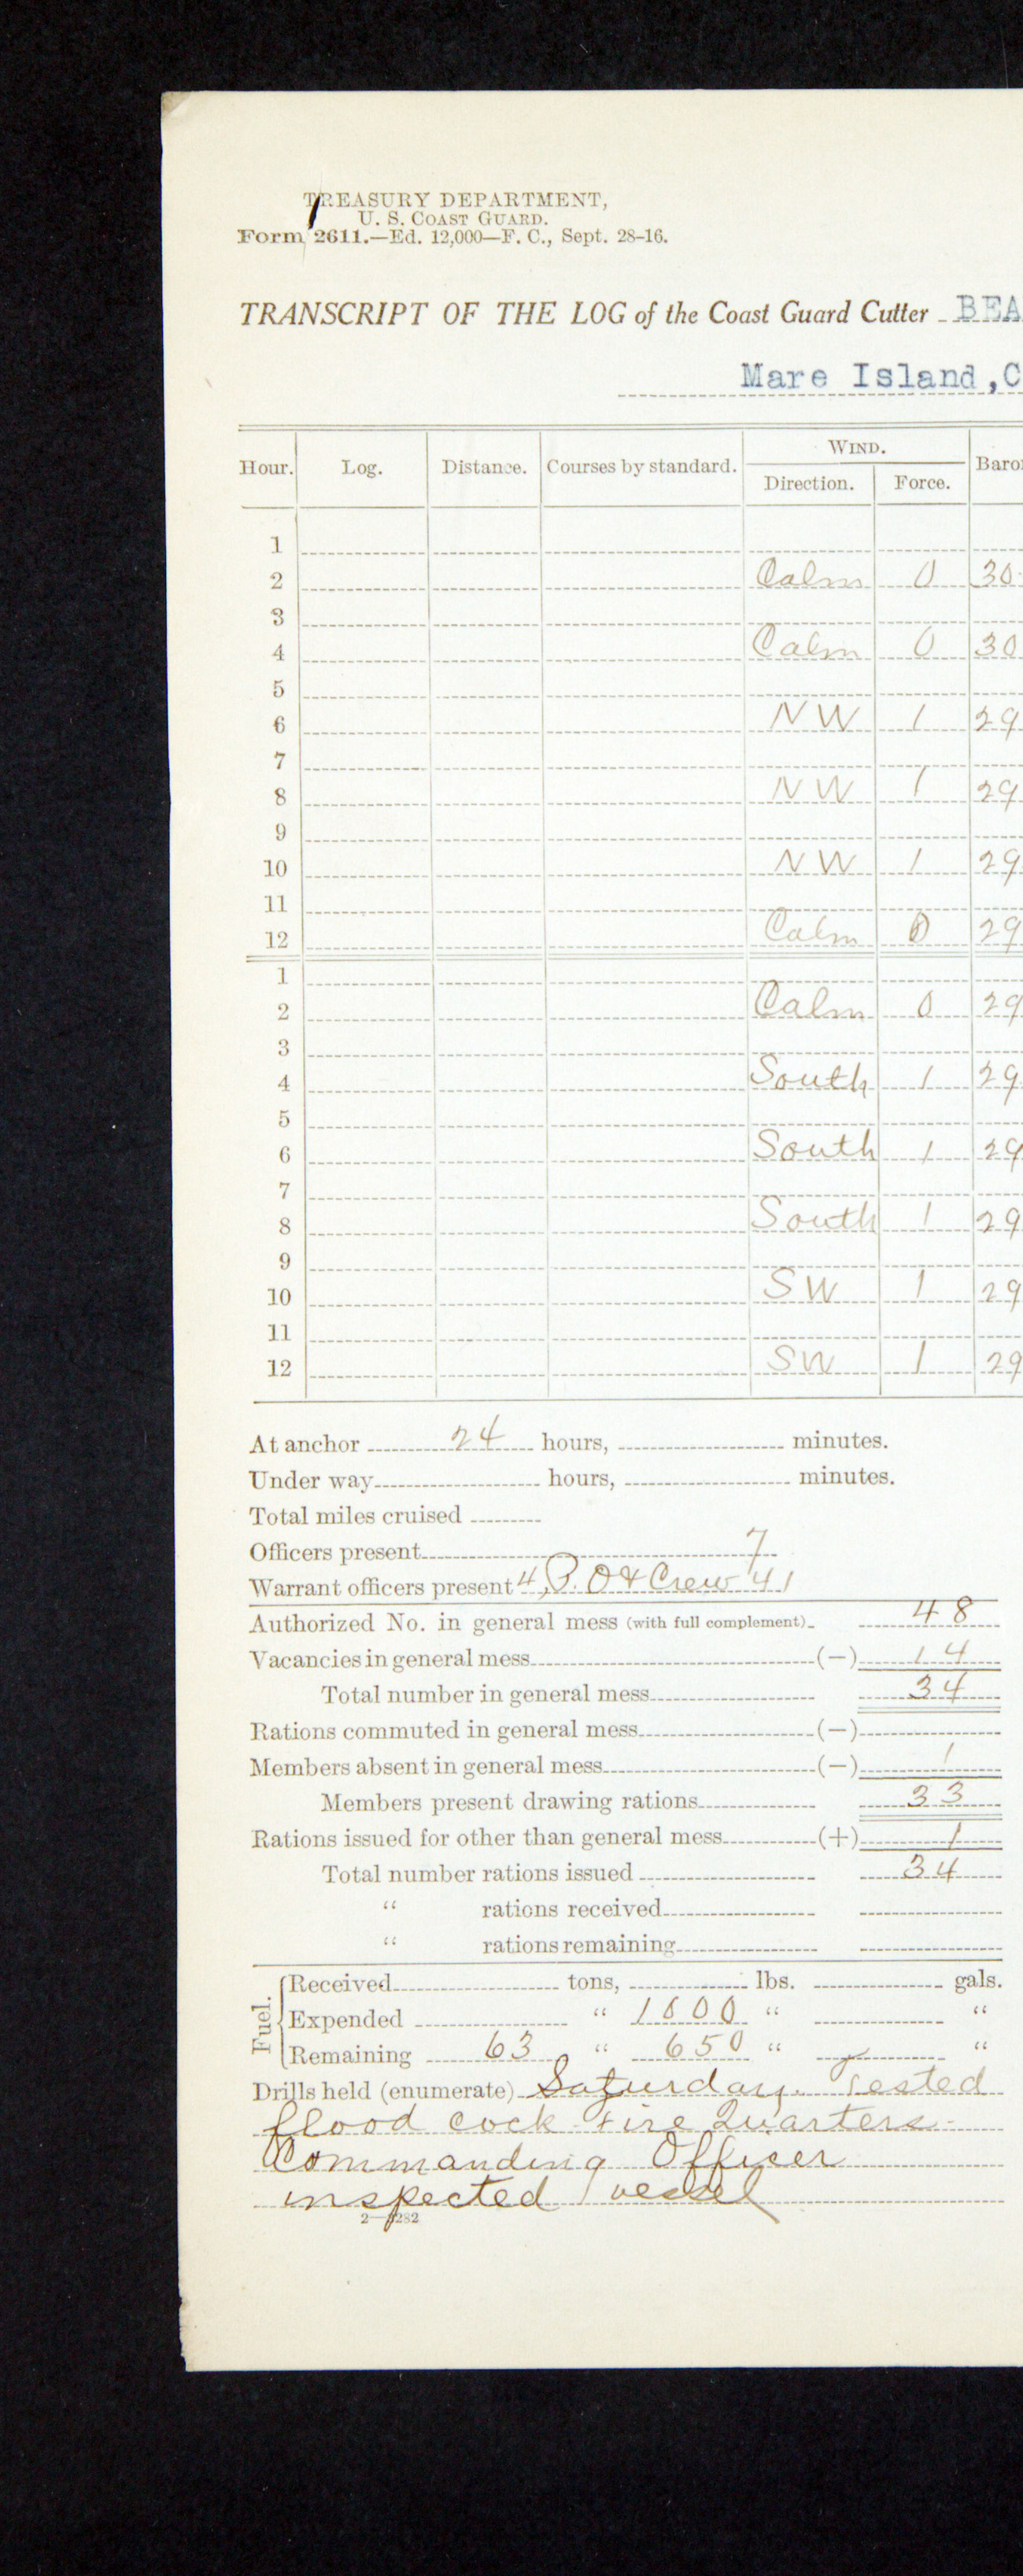 TREASURY DEPARTMENT,
U. S. COAST GUARD.
Form 2611.—Ed. 12,000—F. C., Sept. 28-16.
TRANSCRIPT OF THE LOG of the Coast Guard Cutter BEA
Mare Island, C
Hour. Log. Distance. Courses by standard. WIND. Baro
Direction. Force.
1
2 Calm 0 30
3
4 Calm 0 30
5
6 NW 1 29
7
8 NW 1 29
9
10 NW 1 29
11
12 Calm 0 29
1
2 Calm 0 29
3
4 South 1 29
5
6 South 1 29
7
8 South 1 29
9
10 SW 1 29
11
12 SW 1 29
At anchor 24 hours, minutes.
Under way hours, minutes.
Total miles cruised
Officers present 7
Warrant officers present 4, P. O & Crew 41
Authorized No. in general mess (with full complement) 48
Vacancies in general mess (—) 14
Total number in general mess 34
Rations commuted in general mess (—)
Members absent in general mess (—) 1
Members present drawing rations 33
Rations issued for other than general mess (+) 1
Total number rations issued 34
" rations received
" rations remaining
Fuel. Received tons, lbs. gals.
Expended " 1800 " "
Remaining 63 " 650 " "
Drills held (enumerate) Saturday. Tested
flood cock Fire Quarters-
Commanding Officer
inspected vessel